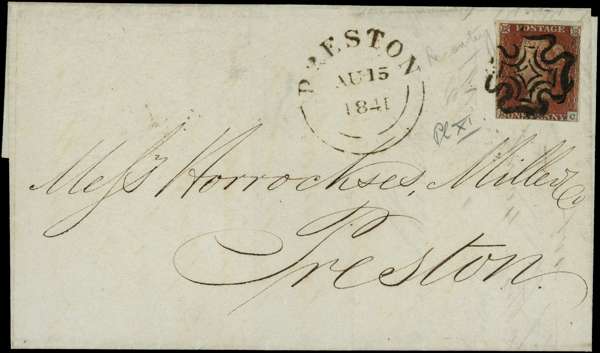 PRESTON
AU 15
1841
POSTAGE
ONE PENNY
Pl XI
Messrs Horrockses, Miller & Co
Preston.